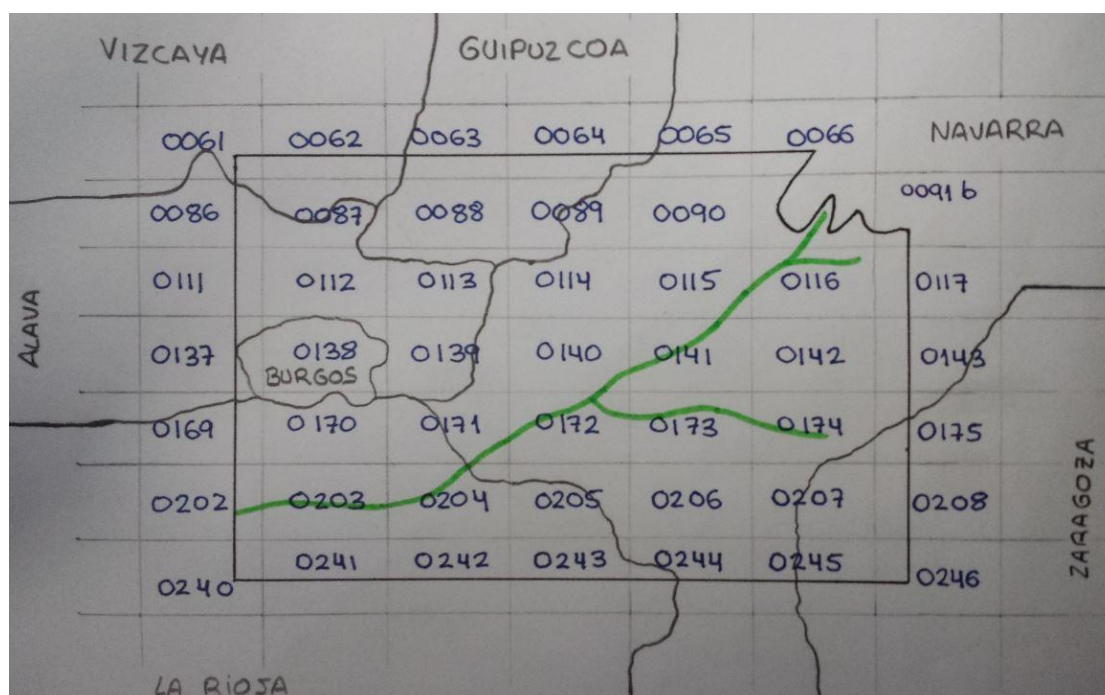 VIZCAYA GUIPUZCOA
0061 0062 0063 0064 0065 0066 NAVARRA
0086 0087 0088 0089 0090 0091 b
0111 0112 0113 0114 0115 0116 0117
ALAVA
0137 0138 0139 0140 0141 0142 0143
BURGOS
0169 0170 0171 0172 0173 0174 0175
0202 0203 0204 0205 0206 0207 0208
ZARAGOZA
0240 0241 0242 0243 0244 0245 0246
LA RIOJA